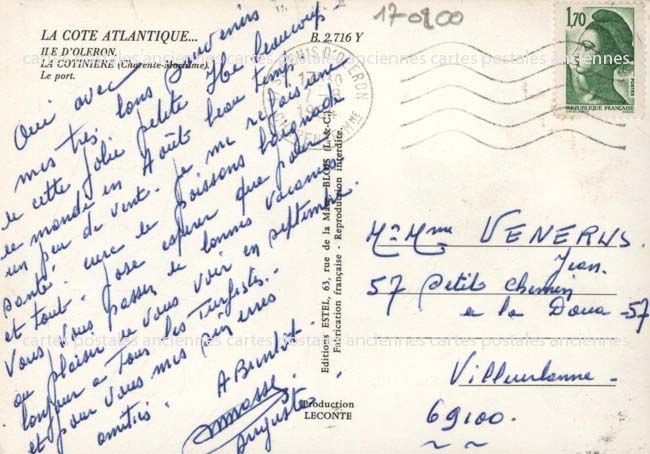 LA COTE ATLANTIQUE...
B. 2.716 Y
ILE D'OLERON.
LA COTINIÈRE (Charente-Maritime).
Le port.
170800
1,70
POSTES
REPUBLIQUE FRANÇAISE
ST DENIS D'OLERON
17-8
CHARENTE Mme
Oui avec
mes très bons souvenirs
de cette jolie petite Ile beaucoup
de monde en Août beau temps
un peu de vent. je me refais une
santé. cure de poissons baignade
et tout. j'ose espérer que pour
vous vous passez de bonnes vacances
au plaisir de vous voir en septembre
bonjour a tous les Turfistes.
et pour vous mes sincères
amitiés. A Bientôt.
Auguste
Editions ESTEL, 63, rue de la Mare, BLOIS (L.-&-C.)
Fabrication française - Reproduction interdite.
Production
LECONTE
Mr Mme VENERUS.
Jean.
57 Petit Chemin
de la Doua - 57
Villeurbanne.
69100.
cartes postales anciennes cartes postales anciennes